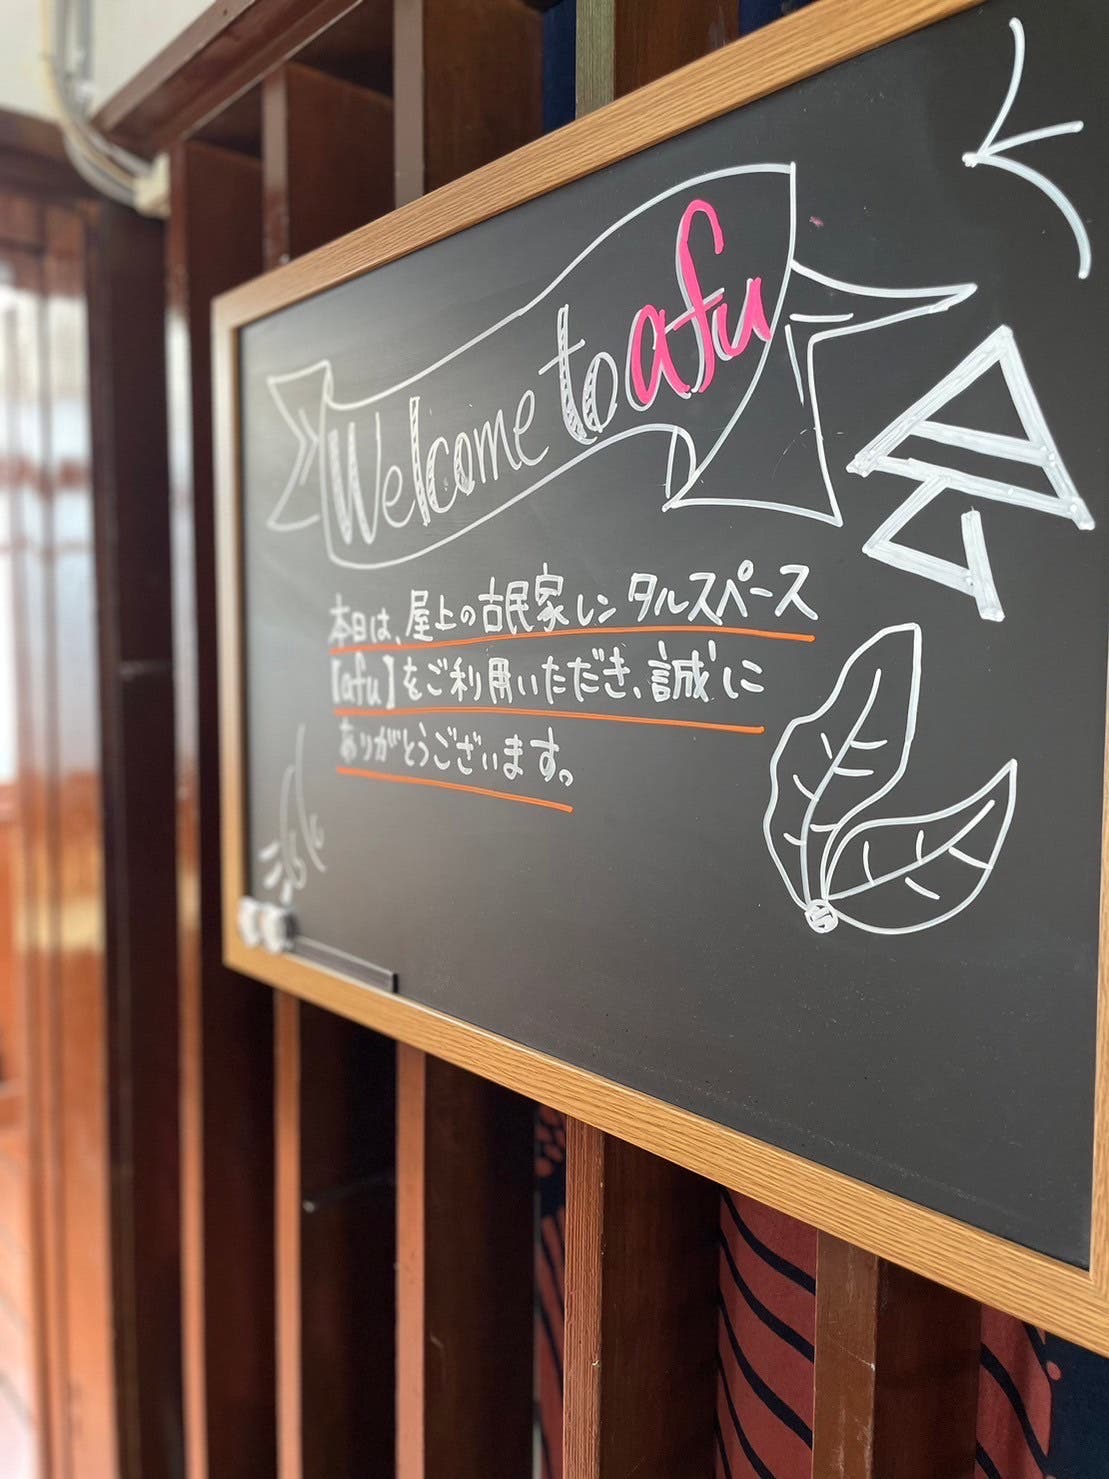 Welcome to afu
本日は、屋上の古民家レンタルスペース
【afu】をご利用いただき、誠に
ありがとうございます。